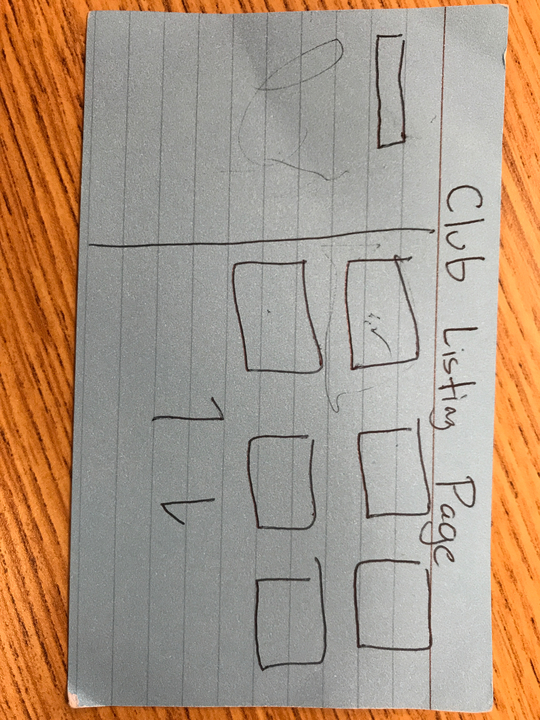 Club Listing Page